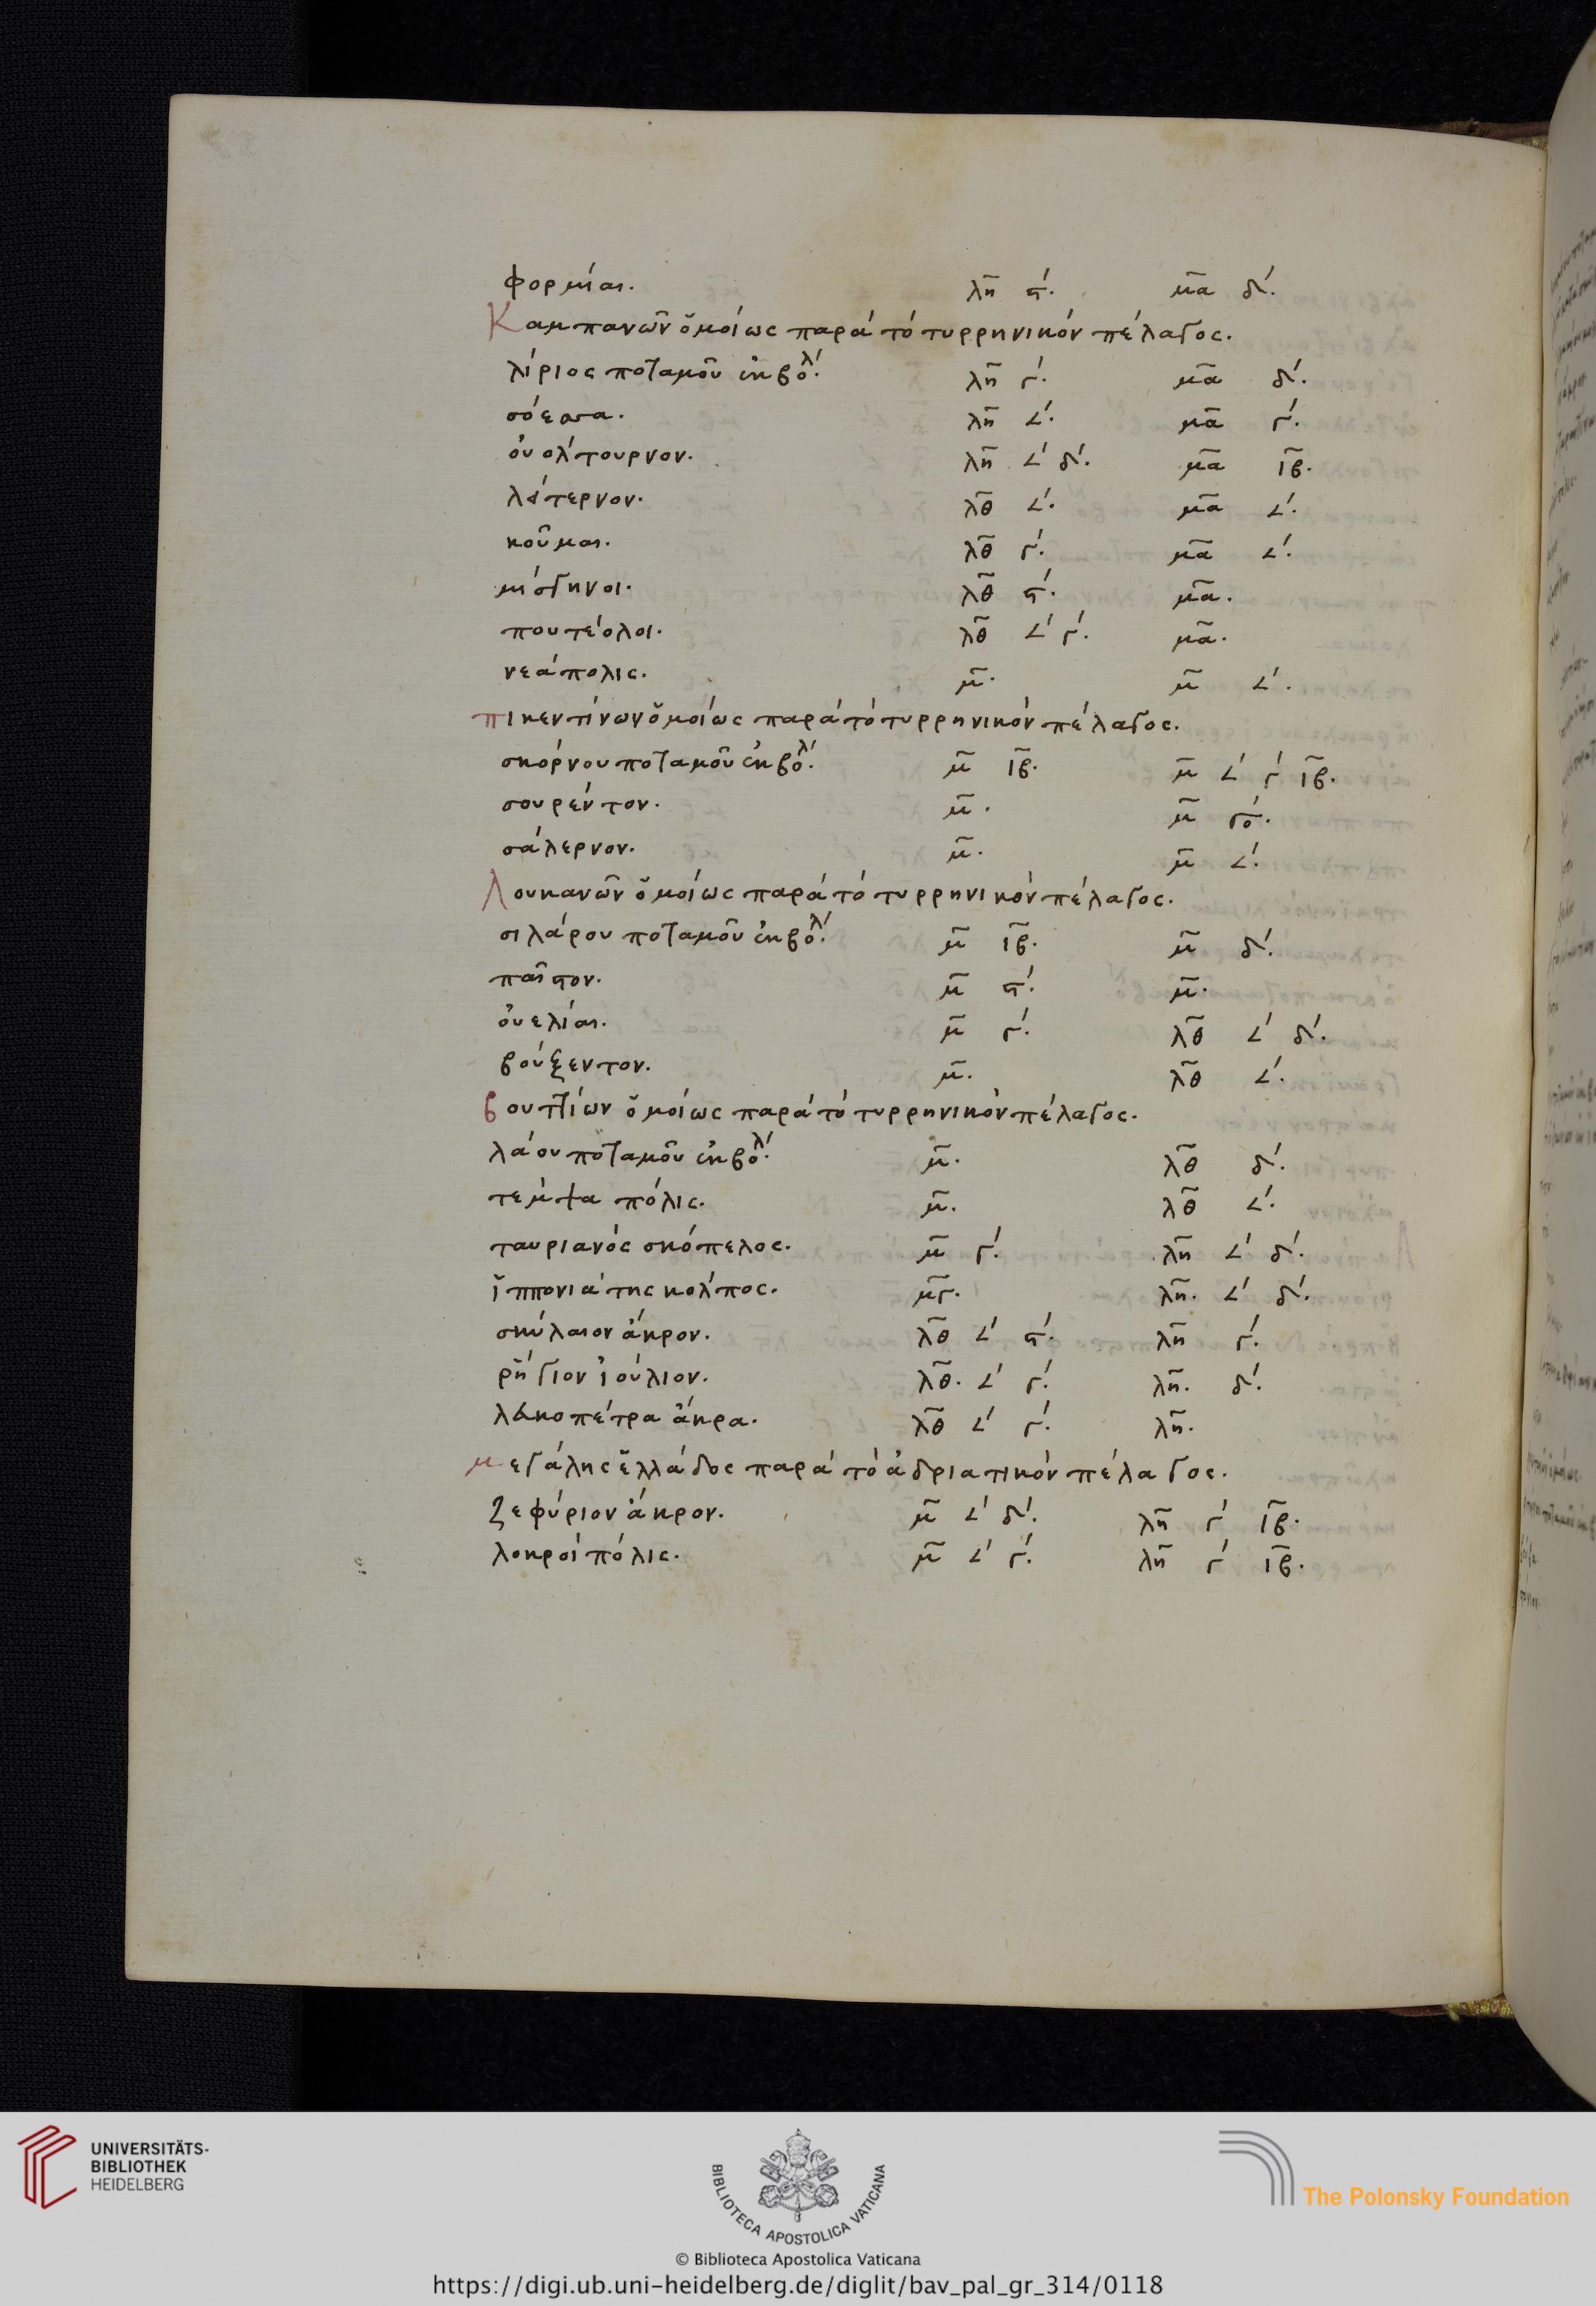 φορμίαι. λη̅ ϛ́. μα̅ δ́.
Καμπανῶν ὁμοίως παρὰ τὸ τυρρηνικὸν πέλαγος.
λίριος ποταμοῦ ἐκβολ́. λη̅ γ́. μα̅ δ́.
σόεσσα. λη̅ ∠́. μα̅ γ́.
οὐολτουρνον. λη̅ ∠́ δ́. μα̅ ιβ̅.
λάτερνον. λθ̅ ∠́. μα̅ ∠́.
κοῦμαι. λθ̅ γ́. μα̅ ∠́.
μίσηνοι. λθ̅ ϛ́. μα̅.
πουτέολοι. λθ̅ ∠́ γ́. μα̅.
νεάπολις. μ̅. μ̅ ∠́.
πικεντίνων ὁμοίως παρὰ τὸ τυρρηνικὸν πέλαγος.
σκόρνου ποταμοῦ ἐκβολ́. μ̅ ιβ̅. μ̅ ∠́ γ́ ιβ̅.
σουρέντον. μ̅. μ̅ γό.
σάλερνον. μ̅. μ̅ ∠́.
Λουκανῶν ὁμοίως παρὰ τὸ τυρρηνικὸν πέλαγος.
σιλάρου ποταμοῦ ἐκβολ́. μ̅ ιβ̅. μ̅ δ́.
παῖστον. μ̅ ϛ́. μ̅.
οὐελίαι. μ̅ γ́. λθ̅ ∠́ δ́.
βούξεντον. μ̅. λθ̅ ∠́.
βουττίων ὁμοίως παρὰ τὸ τυρρηνικὸν πέλαγος.
λάου ποταμοῦ ἐκβολ́. μ̅. λθ̅ δ́.
τεμψα πόλις. μ̅. λθ̅ ∠́.
ταυριανός σκόπελος. μ̅ γ́. λη̅ ∠́ δ́.
ἱππονιάτης κολπος. μγ̅. λη̅. ∠́ δ́.
σκύλαιον ἄκρον. λθ̅ ∠́ ϛ́. λη̅ γ́.
ῥήγιον ἰούλιον. λθ̅. ∠́ γ́. λη̅. δ́.
λευκοπέτρα ἄκρα. λθ̅ ∠́ γ́. λη̅.
μεγάλης ἑλλάδος παρὰ τὸ ἀδριατικὸν πέλαγος.
ζεφύριον ἄκρον. μ̅ ∠́ δ́. λη̅ γ́ ιβ̅.
λοκροί πόλις. μ̅ ∠́ γ́. λη̅ γ́ ιβ̅.
UNIVERSITÄTS-
BIBLIOTHEK
HEIDELBERG
BIBLIOTECA APOSTOLICA VATICANA
The Polonsky Foundation
© Biblioteca Apostolica Vaticana
https://digi.ub.uni-heidelberg.de/diglit/bav_pal_gr_314/0118